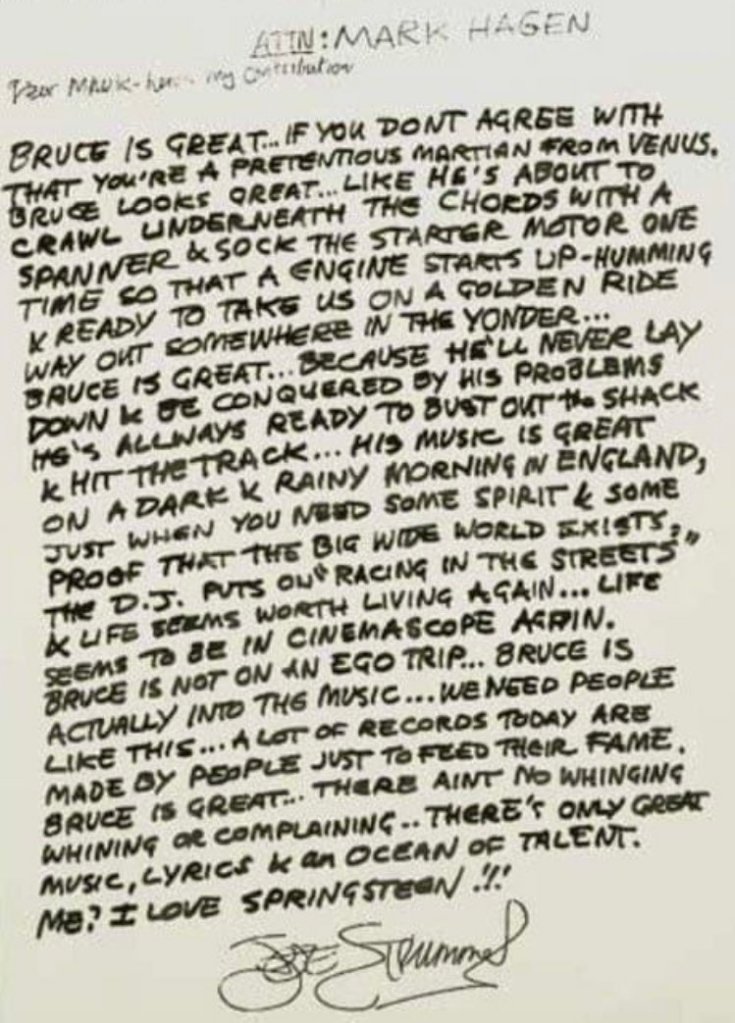 ATTN: MARK HAGEN
Dear MARK - here's my Contribution
BRUCE IS GREAT... IF YOU DONT AGREE WITH
THAT YOU'RE A PRETENTIOUS MARTIAN FROM VENUS.
BRUCE LOOKS GREAT... LIKE HE'S ABOUT TO
CRAWL UNDERNEATH THE CHORDS WITH A
SPANNER & SOCK THE STARTER MOTOR ONE
TIME SO THAT A ENGINE STARTS UP-HUMMING
& READY TO TAKE US ON A GOLDEN RIDE
WAY OUT SOMEWHERE IN THE YONDER...
BRUCE IS GREAT... BECAUSE HE'LL NEVER LAY
DOWN & BE CONQUERED BY HIS PROBLEMS
HE'S ALLWAYS READY TO BUST OUT the SHACK
& HIT THE TRACK... HIS MUSIC IS GREAT
ON A DARK & RAINY MORNING IN ENGLAND,
JUST WHEN YOU NEED SOME SPIRIT & SOME
PROOF THAT THE BIG WIDE WORLD EXISTS,
THE D.J. PUTS ON "RACING IN THE STREETS"
& LIFE SEEMS WORTH LIVING AGAIN... LIFE
SEEMS TO BE IN CINEMASCOPE AGAIN.
BRUCE IS NOT ON AN EGO TRIP... BRUCE IS
ACTUALLY INTO THE MUSIC... WE NEED PEOPLE
LIKE THIS... A LOT OF RECORDS TODAY ARE
MADE BY PEOPLE JUST TO FEED THEIR FAME.
BRUCE IS GREAT... THERE AINT NO WHINGING
WHINING OR COMPLAINING.. THERE'S ONLY GREAT
MUSIC, LYRICS & an OCEAN OF TALENT.
ME? I LOVE SPRINGSTEEN!!!
JOE STRUMMER